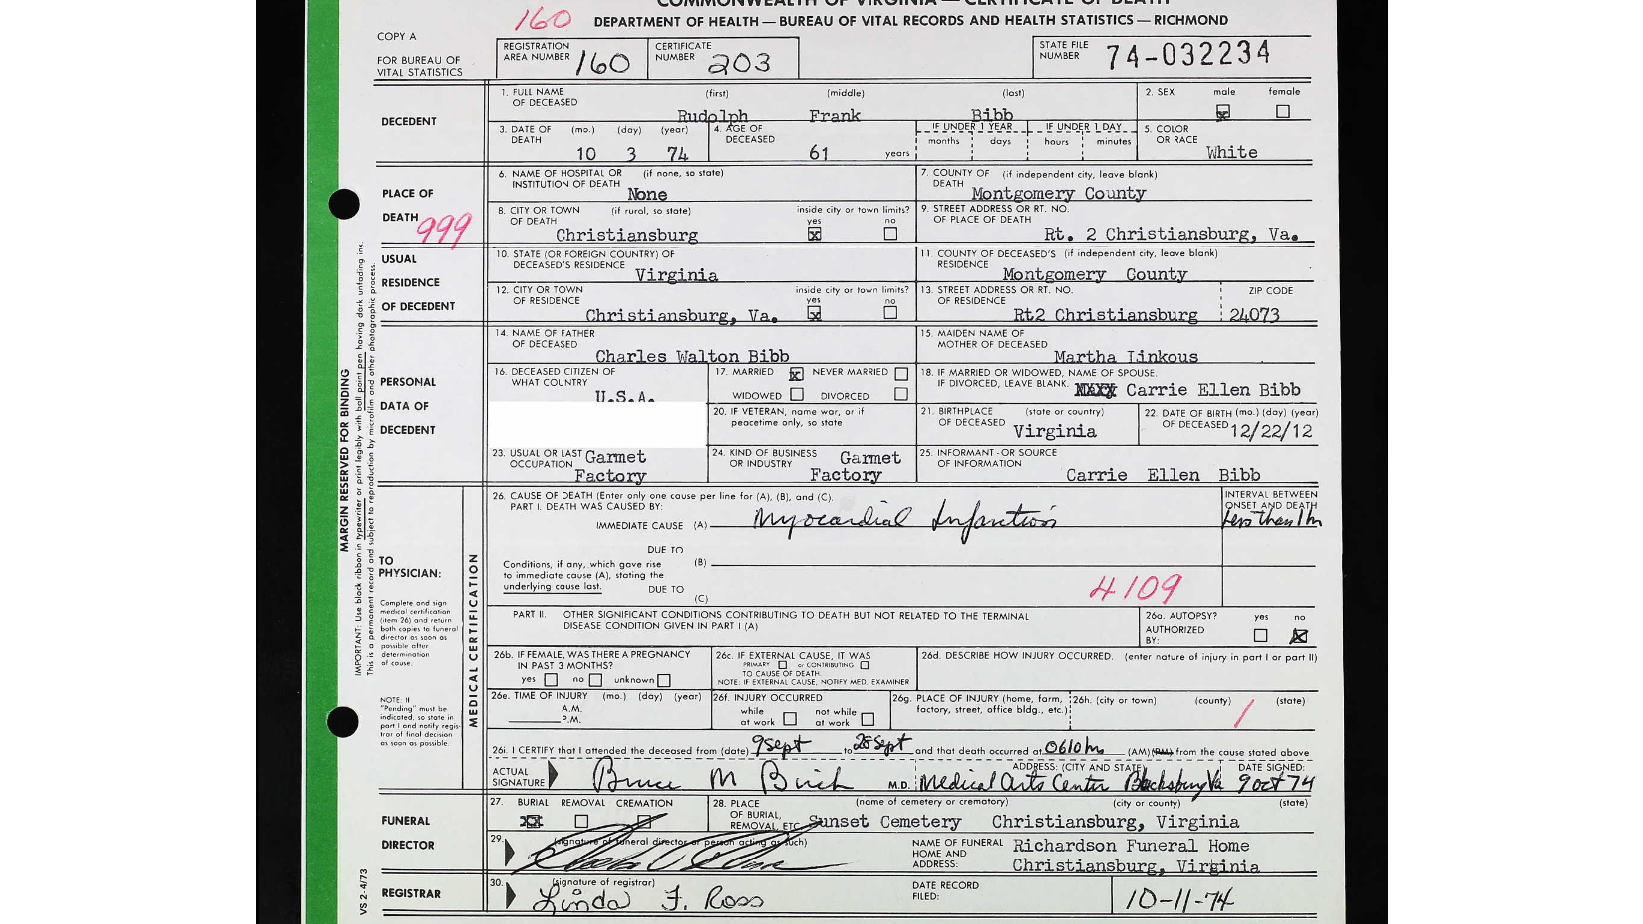 COMMONWEALTH OF VIRGINIA — CERTIFICATE OF DEATH
160 DEPARTMENT OF HEALTH — BUREAU OF VITAL RECORDS AND HEALTH STATISTICS — RICHMOND
COPY A
FOR BUREAU OF VITAL STATISTICS
REGISTRATION AREA NUMBER 160
CERTIFICATE NUMBER 203
STATE FILE NUMBER 74-032234
DECEDENT
1. FULL NAME OF DECEASED (first) (middle) (last)
Rudolph Frank Bibb
2. SEX male female
3. DATE OF DEATH (mo.) (day) (year)
10 3 74
4. AGE OF DECEASED
61 years
IF UNDER 1 YEAR months days
IF UNDER 1 DAY hours minutes
5. COLOR OR RACE
White
PLACE OF DEATH 999
6. NAME OF HOSPITAL OR INSTITUTION OF DEATH (if none, so state)
None
7. COUNTY OF DEATH (if independent city, leave blank)
Montgomery County
8. CITY OR TOWN OF DEATH (if rural, so state) inside city or town limits? yes no
Christiansburg
9. STREET ADDRESS OR RT. NO. OF PLACE OF DEATH
Rt. 2 Christiansburg, Va.
USUAL RESIDENCE OF DECEDENT
10. STATE (OR FOREIGN COUNTRY) OF DECEASED'S RESIDENCE
Virginia
11. COUNTY OF DECEASED'S RESIDENCE (if independent city, leave blank)
Montgomery County
12. CITY OR TOWN OF RESIDENCE inside city or town limits? yes no
Christiansburg, Va.
13. STREET ADDRESS OR RT. NO. OF RESIDENCE
Rt2 Christiansburg
ZIP CODE
24073
PERSONAL DATA OF DECEDENT
14. NAME OF FATHER OF DECEASED
Charles Walton Bibb
15. MAIDEN NAME OF MOTHER OF DECEASED
Martha Linkous
16. DECEASED CITIZEN OF WHAT COUNTRY
U.S.A.
17. MARRIED NEVER MARRIED
WIDOWED DIVORCED
18. IF MARRIED OR WIDOWED, NAME OF SPOUSE. IF DIVORCED, LEAVE BLANK.
Carrie Ellen Bibb
20. IF VETERAN, name war, or if peacetime only, so state
21. BIRTHPLACE OF DECEASED (state or country)
Virginia
22. DATE OF BIRTH (mo.) (day) (year) OF DECEASED
12/22/12
23. USUAL OR LAST OCCUPATION
Garmet Factory
24. KIND OF BUSINESS OR INDUSTRY
Garmet Factory
25. INFORMANT - OR SOURCE OF INFORMATION
Carrie Ellen Bibb
MARGIN RESERVED FOR BINDING
IMPORTANT: Use black ribbon in typewriter or print legibly with ball point pen having dark unfading ink.
This is a permanent record and subject to reproduction by microfilm and other photographic process.
MEDICAL CERTIFICATION
TO PHYSICIAN:
Complete and sign medical certification (item 26) and return both copies to funeral director as soon as possible after determination of cause.
NOTE: If "Pending" must be indicated, so state in part I and notify registrar of final decision as soon as possible.
26. CAUSE OF DEATH (Enter only one cause per line for (A), (B), and (C).
PART I. DEATH WAS CAUSED BY:
IMMEDIATE CAUSE (A) Myocardial Infarction
INTERVAL BETWEEN ONSET AND DEATH
Less than 1 hr
DUE TO
Conditions, if any, which gave rise to immediate cause (A), stating the underlying cause last.
(B)
DUE TO
(C)
4109
PART II. OTHER SIGNIFICANT CONDITIONS CONTRIBUTING TO DEATH BUT NOT RELATED TO THE TERMINAL DISEASE CONDITION GIVEN IN PART I (A)
26a. AUTOPSY? yes no
AUTHORIZED BY:
26b. IF FEMALE, WAS THERE A PREGNANCY IN PAST 3 MONTHS?
yes no unknown
26c. IF EXTERNAL CAUSE, IT WAS
PRIMARY or CONTRIBUTING
TO CAUSE OF DEATH.
NOTE: IF EXTERNAL CAUSE, NOTIFY MED. EXAMINER
26d. DESCRIBE HOW INJURY OCCURRED. (enter nature of injury in part I or part II)
26e. TIME OF INJURY (mo.) (day) (year)
A.M.
P.M.
26f. INJURY OCCURRED
while at work not while at work
26g. PLACE OF INJURY (home, farm, factory, street, office bldg., etc.)
26h. (city or town) (county) (state)
26i. I CERTIFY that I attended the deceased from (date) 9 Sept to 28 Sept and that death occurred at 0610 hrs (AM) (PM) from the cause stated above
ACTUAL SIGNATURE Bruce M M.D.
ADDRESS: (CITY AND STATE)
Medical Arts Center Blacksburg Va
DATE SIGNED:
9 Oct 74
FUNERAL DIRECTOR
27. BURIAL REMOVAL CREMATION
28. PLACE OF BURIAL, REMOVAL, ETC. (name of cemetery or crematory) (city or county) (state)
Sunset Cemetery Christiansburg, Virginia
29. (signature of funeral director or person acting as such)
NAME OF FUNERAL HOME AND ADDRESS:
Richardson Funeral Home
Christiansburg, Virginia
REGISTRAR
30. (signature of registrar)
Linda F. Ross
DATE RECORD FILED:
10-11-74
VS 2-4/73